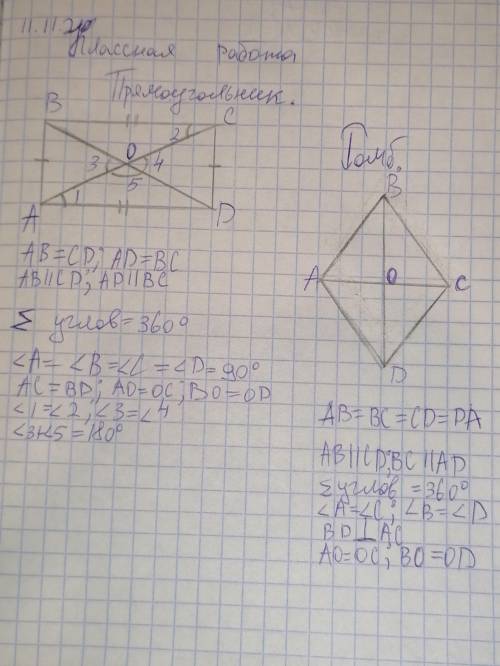 11.11.20
Классная работа
Прямоугольник.
B C
2
O
3 4
5
1
A D
AB=CD; AD=BC
AB||CD; AD||BC
Σ углов=360°
∠A=∠B=∠C=∠D=90°
AC=BD; AO=OC; BO=OD
∠1=∠2; ∠3=∠4
∠3+∠5=180°
Ромб.
B
A O C
D
AB=BC=CD=DA
AB||CD; BC||AD
Σ углов =360°
∠A=∠C; ∠B=∠D
BD⊥AC
AO=OC; BO=OD